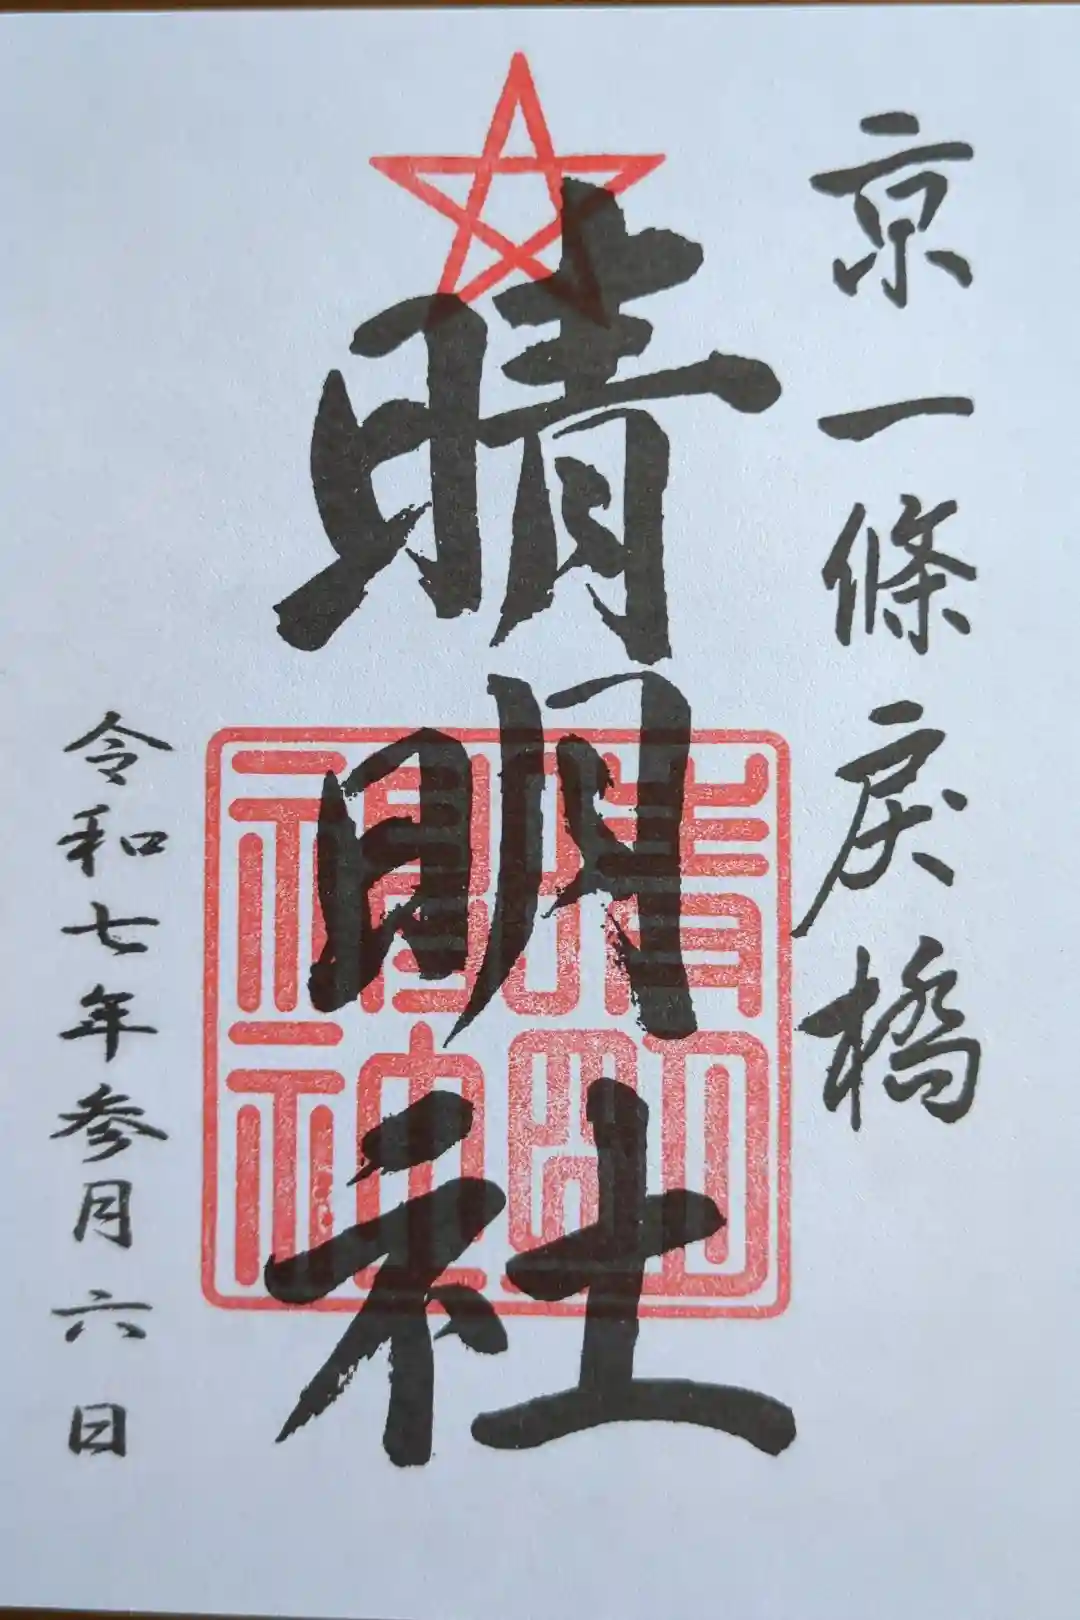 京一條戻橋
晴明社
晴明
神社
令和七年参月六日